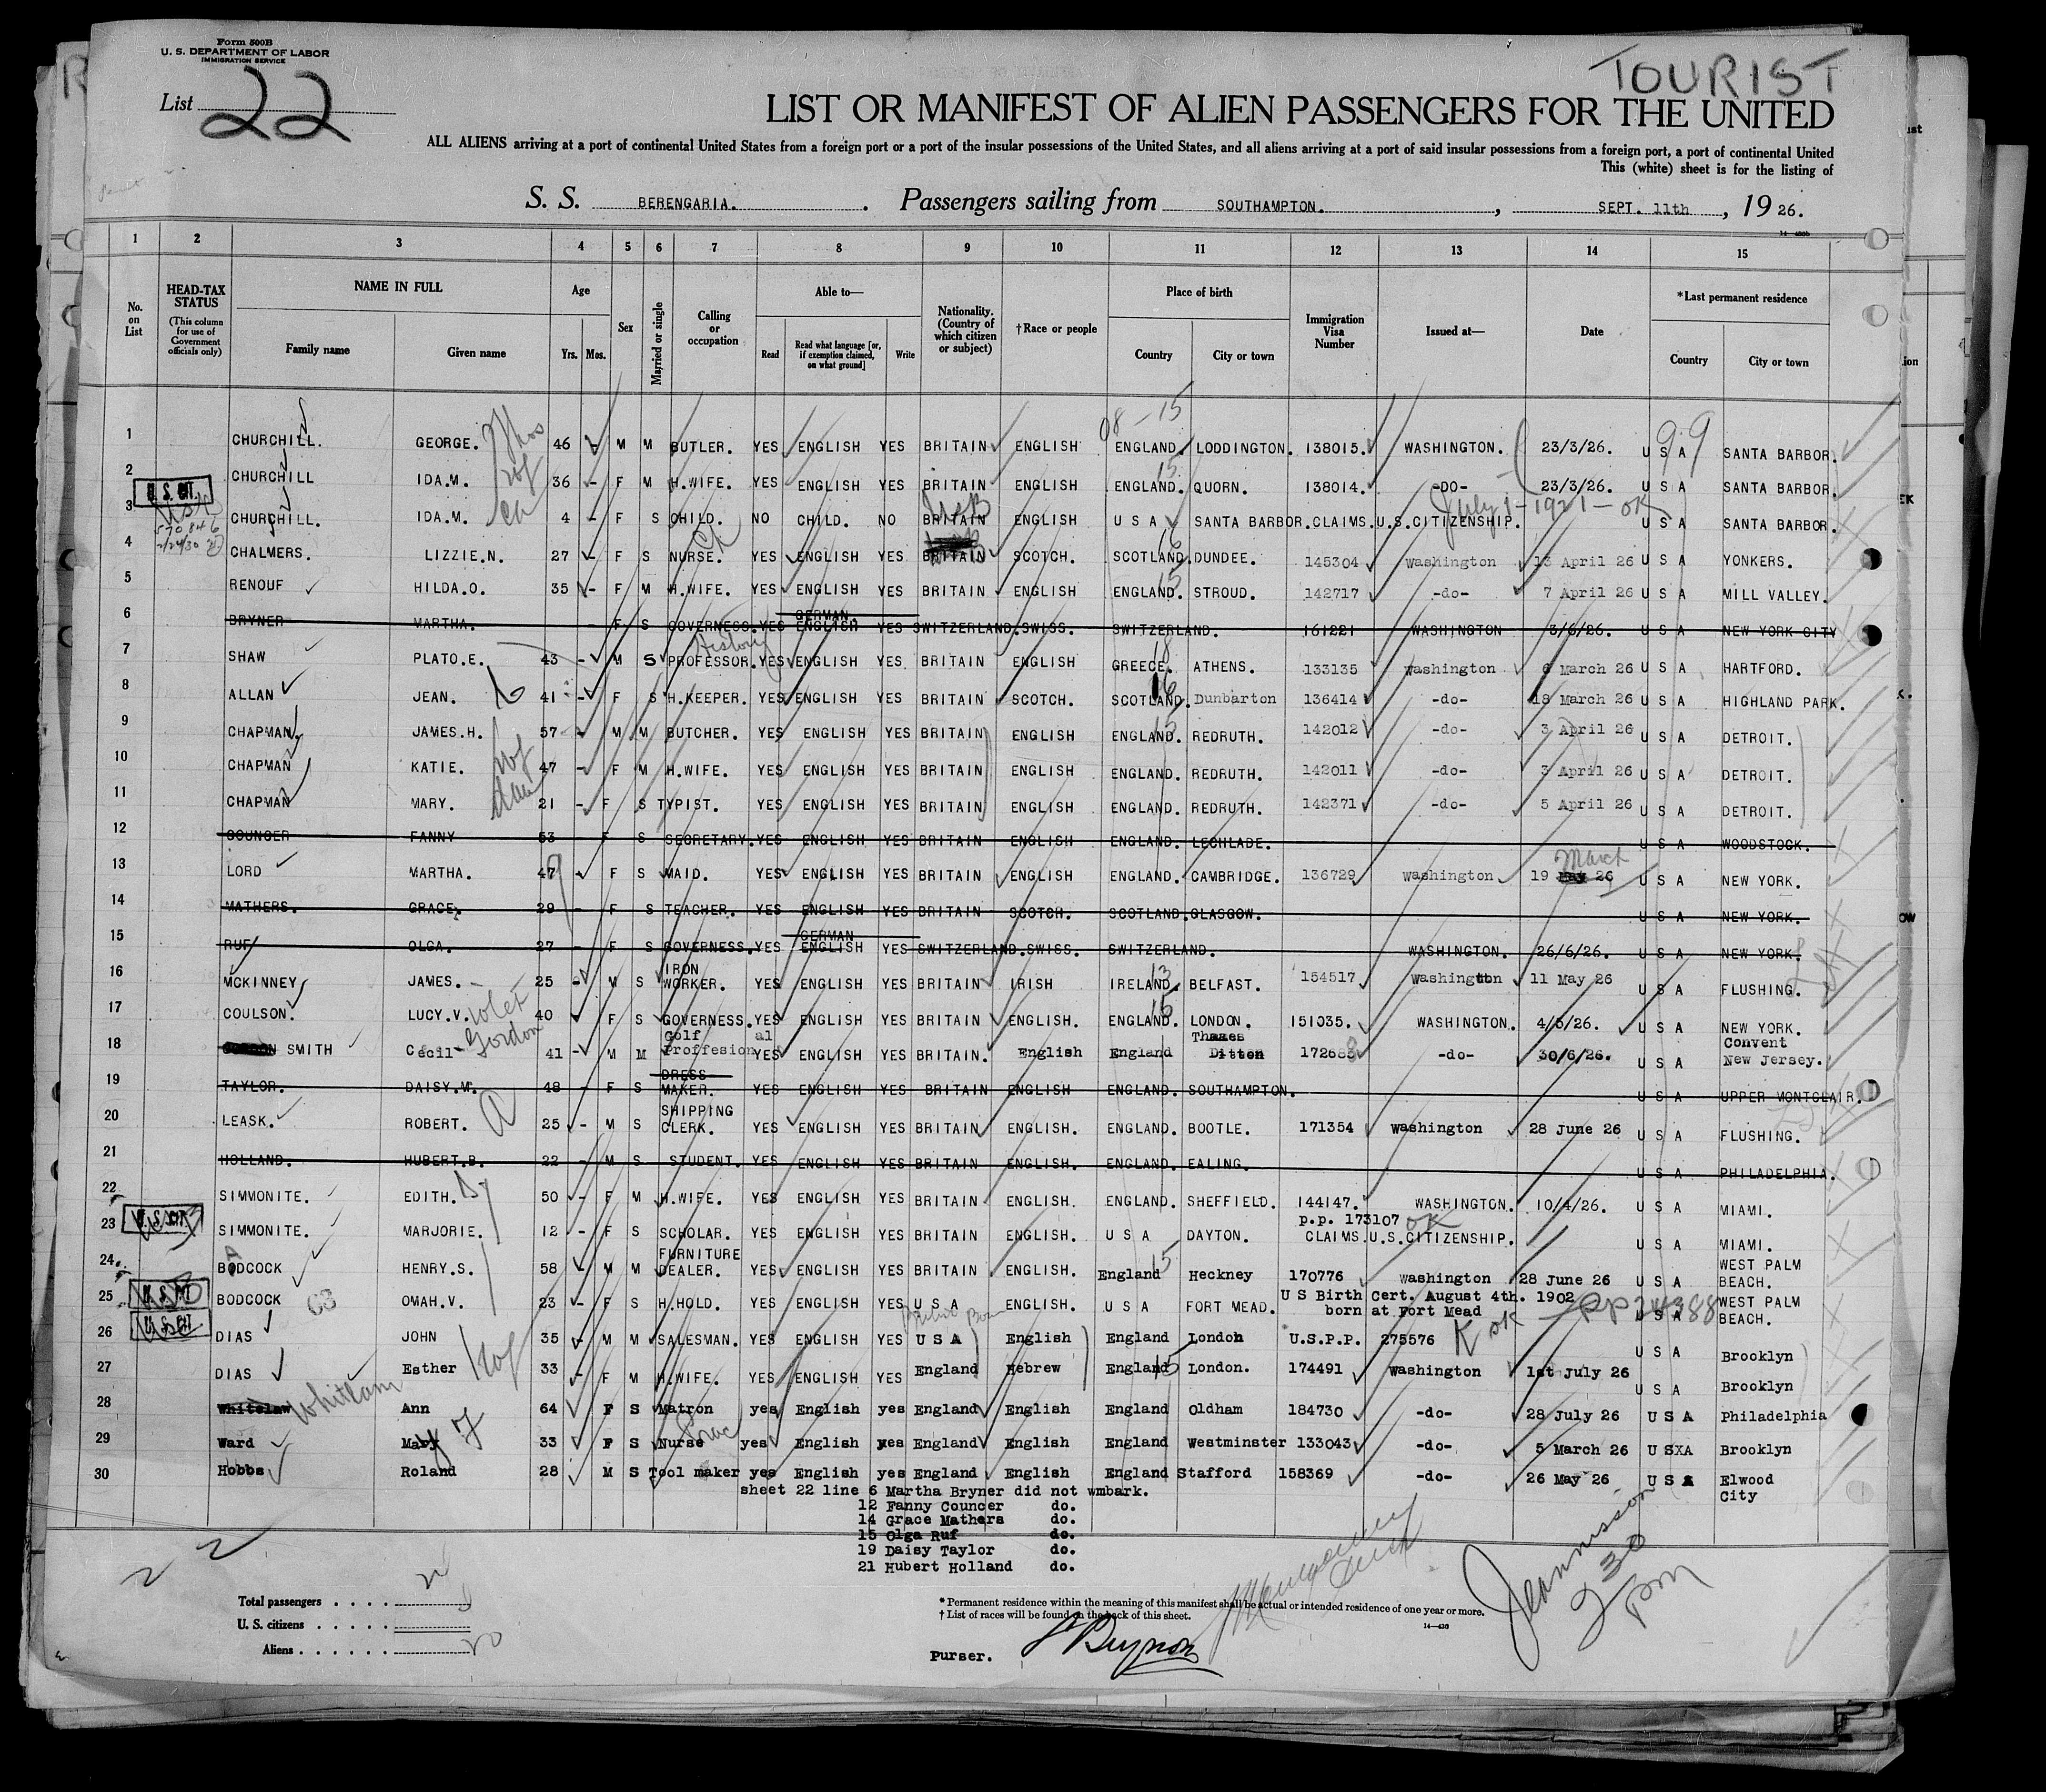 Form 500B
U. S. DEPARTMENT OF LABOR
IMMIGRATION SERVICE
TOURIST
List 22
LIST OR MANIFEST OF ALIEN PASSENGERS FOR THE UNITED
ALL ALIENS arriving at a port of continental United States from a foreign port or a port of the insular possessions of the United States, and all aliens arriving at a port of said insular possessions from a foreign port, a port of continental United
This (white) sheet is for the listing of
S. S. BERENGARIA. Passengers sailing from SOUTHAMPTON. , SEPT. 11th , 19 26.
1 2 3 4 5 6 7 8 9 10 11 12 13 14 15
No. on List
HEAD-TAX STATUS
(This column for use of Government officials only)
NAME IN FULL
Family name Given name
Age
Yrs. Mos.
Sex
Married or single
Calling or occupation
Able to—
Read Read what language [or, if exemption claimed, on what ground] Write
Nationality. (Country of which citizen or subject)
†Race or people
Place of birth
Country City or town
Immigration Visa Number
Issued at—
Date
*Last permanent residence
Country City or town
08-15 99
1 CHURCHILL. GEORGE. 46 - M M BUTLER. YES ENGLISH YES BRITAIN ENGLISH ENGLAND. LODDINGTON. 138015. WASHINGTON. 23/3/26. U S A SANTA BARBOR.
2 CHURCHILL IDA.M. wf 36 - F M H.WIFE. YES ENGLISH YES BRITAIN ENGLISH ENGLAND. 15 QUORN. 138014. -DO- 23/3/26. U S A SANTA BARBOR.
U. S. CIT.
July 1-1921-OK
3 CHURCHILL. IDA.M. ch 4 - F S CHILD. NO CHILD. NO BRITAIN ENGLISH U S A SANTA BARBOR. CLAIMS.U.S.CITIZENSHIP. U S A SANTA BARBOR.
4 CHALMERS. LIZZIE.N. 27 - F S NURSE. YES ENGLISH YES BRITAIN SCOTCH. SCOTLAND. 16 DUNDEE. 145304 Washington 13 April 26 U S A YONKERS.
5 RENOUF HILDA.O. 35 - F M H.WIFE. YES ENGLISH YES BRITAIN ENGLISH ENGLAND. 15 STROUD. 142717 -do- 7 April 26 U S A MILL VALLEY.
GERMAN.
6 BRYNER MARTHA. - F S GOVERNESS. YES ENGLISH YES SWITZERLAND. SWISS. SWITZERLAND. 161221 WASHINGTON 3/6/26. U S A NEW YORK CITY
History
7 SHAW PLATO.E. 43 - M S PROFESSOR. YES ENGLISH YES BRITAIN ENGLISH GREECE. 18 ATHENS. 133135 Washington 6 March 26 U S A HARTFORD.
8 ALLAN JEAN. 41 - F S H.KEEPER. YES ENGLISH YES BRITAIN SCOTCH. SCOTLAND. 16 Dunbarton 136414 -do- 18 March 26 U S A HIGHLAND PARK.
9 CHAPMAN JAMES.H. 57 - M M BUTCHER. YES ENGLISH YES BRITAIN ENGLISH ENGLAND. 15 REDRUTH. 142012 -do- 3 April 26 U S A DETROIT.
10 CHAPMAN KATIE. wf 47 - F M H.WIFE. YES ENGLISH YES BRITAIN ENGLISH ENGLAND. REDRUTH. 142011 -do- 3 April 26 U S A DETROIT.
11 CHAPMAN MARY. dau 21 - F S TYPIST. YES ENGLISH YES BRITAIN ENGLISH ENGLAND. REDRUTH. 142371 -do- 5 April 26 U S A DETROIT.
12 COUNCER FANNY 53 - F S SECRETARY. YES ENGLISH YES BRITAIN ENGLISH ENGLAND. LECHLADE. U S A WOODSTOCK.
March
13 LORD MARTHA. 47 F S MAID. YES ENGLISH YES BRITAIN ENGLISH ENGLAND. CAMBRIDGE. 136729 Washington 19 May 26 U S A NEW YORK.
14 MATHERS. GRACE. 29 - F S TEACHER. YES ENGLISH YES BRITAIN SCOTCH. SCOTLAND. GLASGOW. U S A NEW YORK.
GERMAN
15 RUF OLGA. 27 - F S GOVERNESS. YES ENGLISH YES SWITZERLAND. SWISS. SWITZERLAND. WASHINGTON. 26/6/26. U S A NEW YORK.
16 MCKINNEY JAMES. 25 - M S IRON WORKER. YES ENGLISH YES BRITAIN IRISH IRELAND. 13 BELFAST. 154517 Washingtun 11 May 26 U S A FLUSHING.
17 COULSON. LUCY.V. Violet 40 F S GOVERNESS. YES ENGLISH YES BRITAIN ENGLISH. ENGLAND. 15 LONDON. 151035. WASHINGTON. 4/5/26. U S A NEW YORK.
18 SMITH Cecil Gordon 41 - M M Golf Proffesional YES ENGLISH YES BRITAIN. English England Thames Ditton 172688 -do- 30/6/26. U S A Convent New Jersey.
19 TAYLOR. DAISY.M. 48 - F S DRESS MAKER. YES ENGLISH YES BRITAIN ENGLISH ENGLAND. SOUTHAMPTON. U S A UPPER MONTCLAIR.
20 LEASK. ROBERT. 25 - M S SHIPPING CLERK. YES ENGLISH YES BRITAIN ENGLISH. ENGLAND. BOOTLE. 171354 Washington 28 June 26 U S A FLUSHING.
21 HOLLAND. HUBERT.B. 22 - M S STUDENT. YES ENGLISH YES BRITAIN ENGLISH. ENGLAND. EALING. U S A PHILADELPHIA.
22 SIMMONITE. EDITH. 50 - F M H.WIFE. YES ENGLISH YES BRITAIN ENGLISH. ENGLAND. SHEFFIELD. 144147. WASHINGTON. 10/4/26. U S A MIAMI.
U. S. CIT.
p.p. 173107 OK
23 SIMMONITE. MARJORIE. 12 - F S SCHOLAR. YES ENGLISH YES BRITAIN ENGLISH. U S A DAYTON. CLAIMS.U.S.CITIZENSHIP. U S A MIAMI.
24 BODCOCK HENRY.S. 58 M M FURNITURE DEALER. YES ENGLISH YES BRITAIN ENGLISH. England 15 Heckney 170776 Washington 28 June 26 U S A WEST PALM BEACH.
U. S. CIT
US Birth Cert. August 4th. 1902
25 BODCOCK OMAH.V. 23 - F S H.HOLD. YES ENGLISH YES U S A ENGLISH. U S A FORT MEAD. born at Fort Mead U S A WEST PALM BEACH.
U. S. CIT
26 DIAS JOHN 35 - M M SALESMAN. YES ENGLISH YES U S A English England London U.S.P.P. 275576 OK U S A Brooklyn
27 DIAS Esther wf 33 - F M H.WIFE. YES ENGLISH YES England Hebrew England 15 London. 174491 Washington 1st July 26 U S A Brooklyn
28 Whitelaw Whitlam Ann 64 F S Matron yes English yes England English England Oldham 184730 -do- 28 July 26 U S A Philadelphia
29 Ward Mary 33 F S Nurse yes English yes England English England Westminster 133043 -do- 5 March 26 U SXA Brooklyn
30 Hobbs Roland 28 M S Tool maker yes English yes England English England Stafford 158369 -do- 26 May 26 U S A Elwood City
sheet 22 line 6 Martha Bryner did not wmbark.
12 Fanny Councer do.
14 Grace Mathers do.
15 Olga Ruf do.
19 Daisy Taylor do.
21 Hubert Holland do.
Total passengers
U. S. citizens
Aliens
* Permanent residence within the meaning of this manifest shall be actual or intended residence of one year or more.
† List of races will be found on the back of this sheet.
14—430
Purser.
230 pm